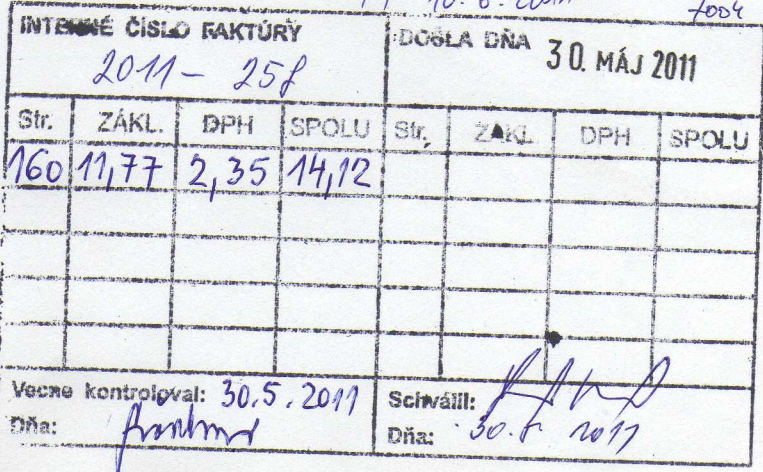 10. 6. 2011 7004
INTERNÉ ČÍSLO FAKTÚRY DOŠLA DŇA 30. MÁJ 2011
2011 - 258
Str. ZÁKL. DPH SPOLU Str. ZÁKL. DPH SPOLU
160 11,77 2,35 14,12
Vecne kontroloval: 30.5.2011 Schválil:
Dňa: Dňa: 30.5 2011